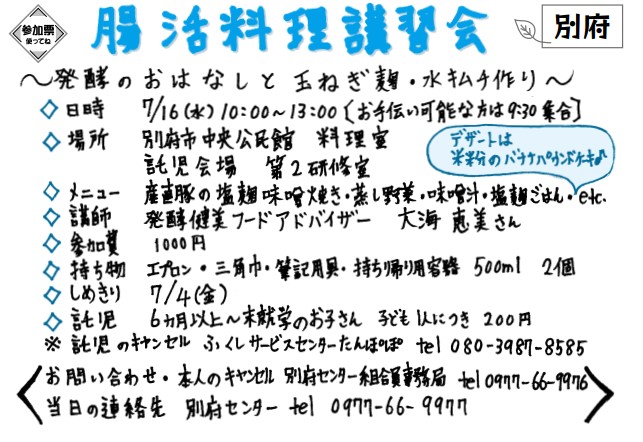 参加票
使ってね
腸活料理講習会
別府
〜発酵のおはなしと 玉ねぎ麹・水キムチ作り〜
◇日時 7/16(水) 10:00〜13:00 [お手伝い可能な方は9:30集合]
◇場所 別府市中央公民館 料理室
託児会場 第2研修室
デザートは
米粉のバナナパウンドケーキ♪
◇メニュー 産直豚の塩麹味噌焼き・蒸し野菜・味噌汁・塩麹ごはん・etc.
◇講師 発酵健美フードアドバイザー 大海 恵美さん
◇参加費 1000円
◇持ち物 エプロン・三角巾・筆記用具・持ち帰り用容器 500ml 2個
◇しめきり 7/4(金)
◇託児 6カ月以上〜未就学のお子さん 子ども1人につき 200円
※託児のキャンセル ふくしサービスセンターたんぽぽ tel 080-3987-8585
お問い合わせ・本人のキャンセル 別府センター組合員事務局 tel 0977-66-9976
当日の連絡先 別府センター tel 0977-66-9977